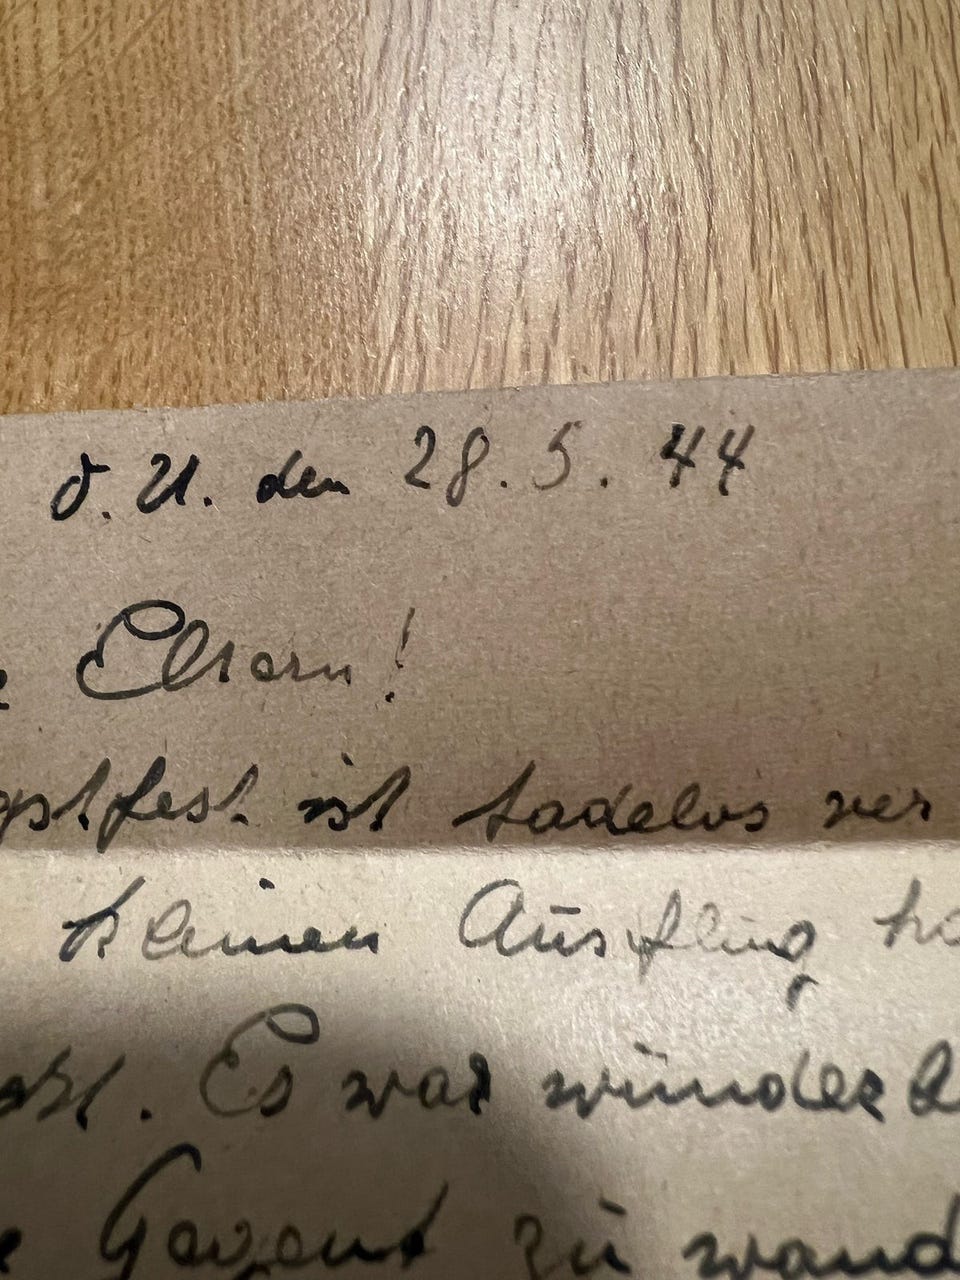 O. U. den 28. 5. 44
Eltern!
gstfest ist tadelos ver
kleinen Ausflug
Es war wunder
Gegent zu wand